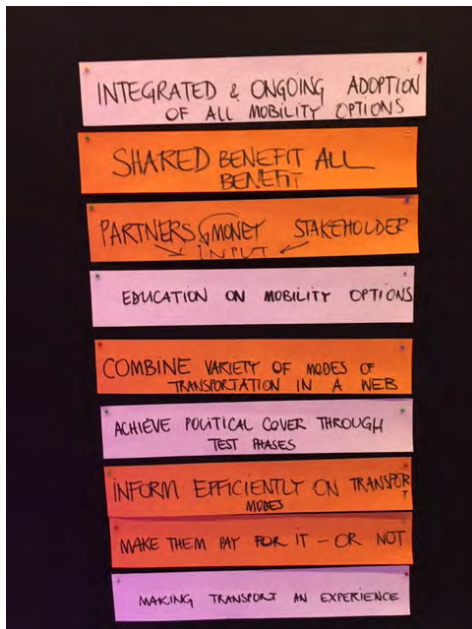 INTEGRATED & ONGOING ADOPTION
OF ALL MOBILITY OPTIONS
SHARED BENEFIT ALL
BENEFIT
PARTNERS MONEY STAKEHOLDER
INPUT
EDUCATION ON MOBILITY OPTIONS
COMBINE VARIETY OF MODES OF
TRANSPORTATION IN A WEB
ACHIEVE POLITICAL COVER THROUGH
TEST PHASES
INFORM EFFICIENTLY ON TRANSPORT
MODES
MAKE THEM PAY FOR IT – OR NOT
MAKING TRANSPORT AN EXPERIENCE